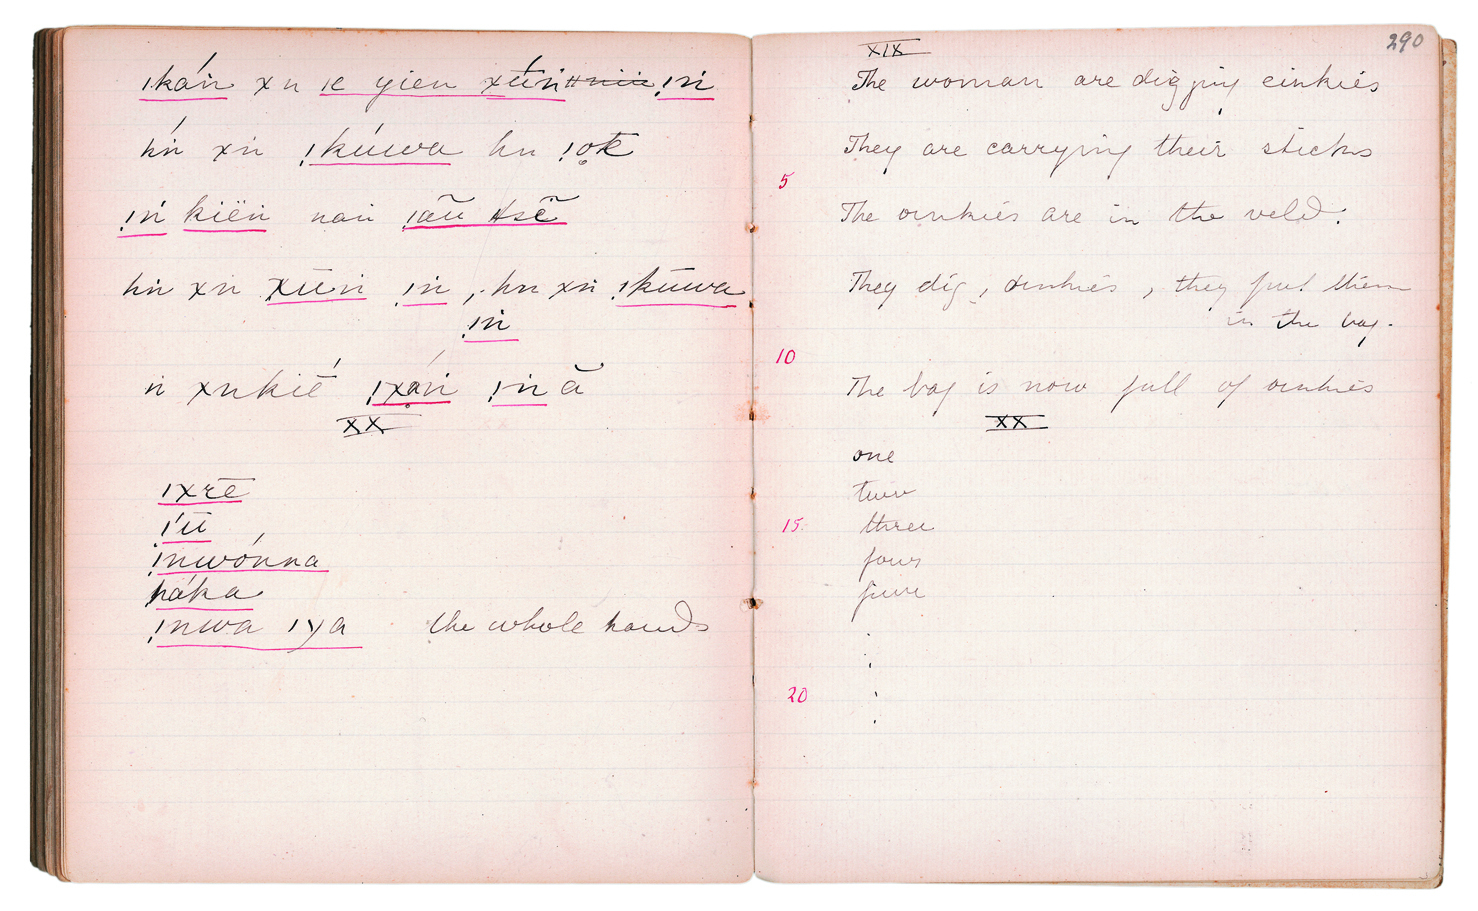 ǀkán xn ǀe yien xún ǃṅ
hń xṅ ǃkúwa hn ǃo̥k
ǃń kiën nań ǀãu ǂsẽ
hṅ xṅ xūṅ ǃṅ, hn xṅ ǃkūwa
ǃṅ
ṅ xnkiḗ ǀxáṅ ǃṅ ā
XX
ǀxrē
ǃ'ū
ǃnwónna
háka
ǃnwa ǀya the whole hands
290
XIX
The woman are digging einkies
They are carrying their sticks
5
The oinkies are in the veld.
They dig, oinkies, they put them
in the bag.
10
The bag is now full of oinkies
XX
one
two
15 three
four
five
20